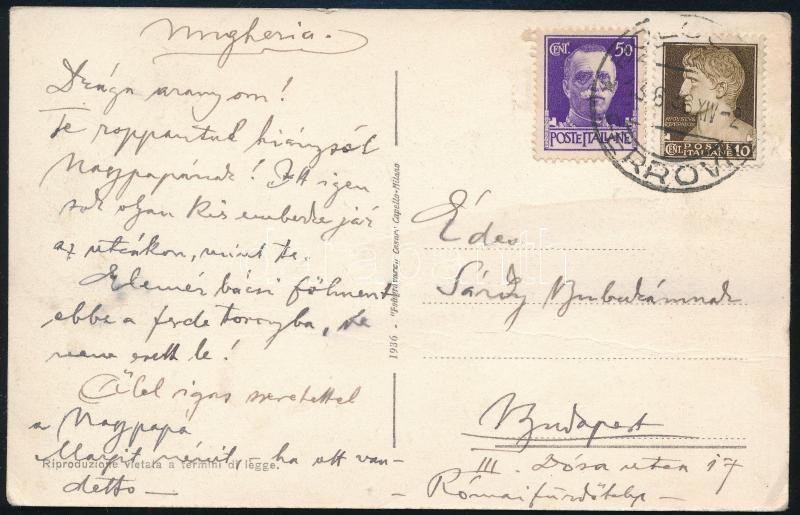 Ungheria.
Drága aranyom!
Te roppantul hiányzol
Nagypapának! Itt igen
sok olyan kis emberke jár
az utcákon, mint te.
Elemér bácsi fölment
ebbe a ferde toronyba, de
nem esett le!
Ölel igaz szeretettel
a Nagypapá
Margit nénit, - ha ott van -
detto -
Riproduzione vietata a termini di legge.
1936 - "Fotogravure" Cesare Capello-Milano
CENT. 50
POSTE ITALIANE
POSTE
CENT. ITALIANE 10
Édes
Sárdy Bubukámnak
Budapest
III. Dósa utca 17
Római fürdőtelep